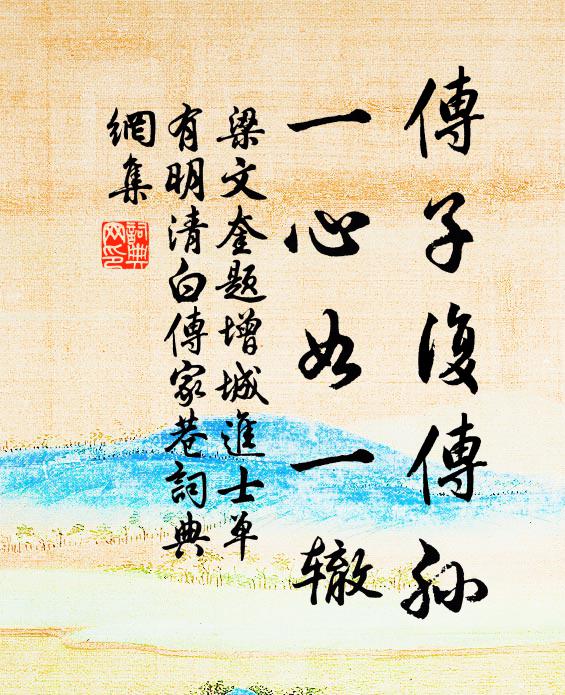 傳子復傳孫
一心如一辙
梁文奎題增城進士单
有明清白傳家巷詞典
網集
詞典
网印